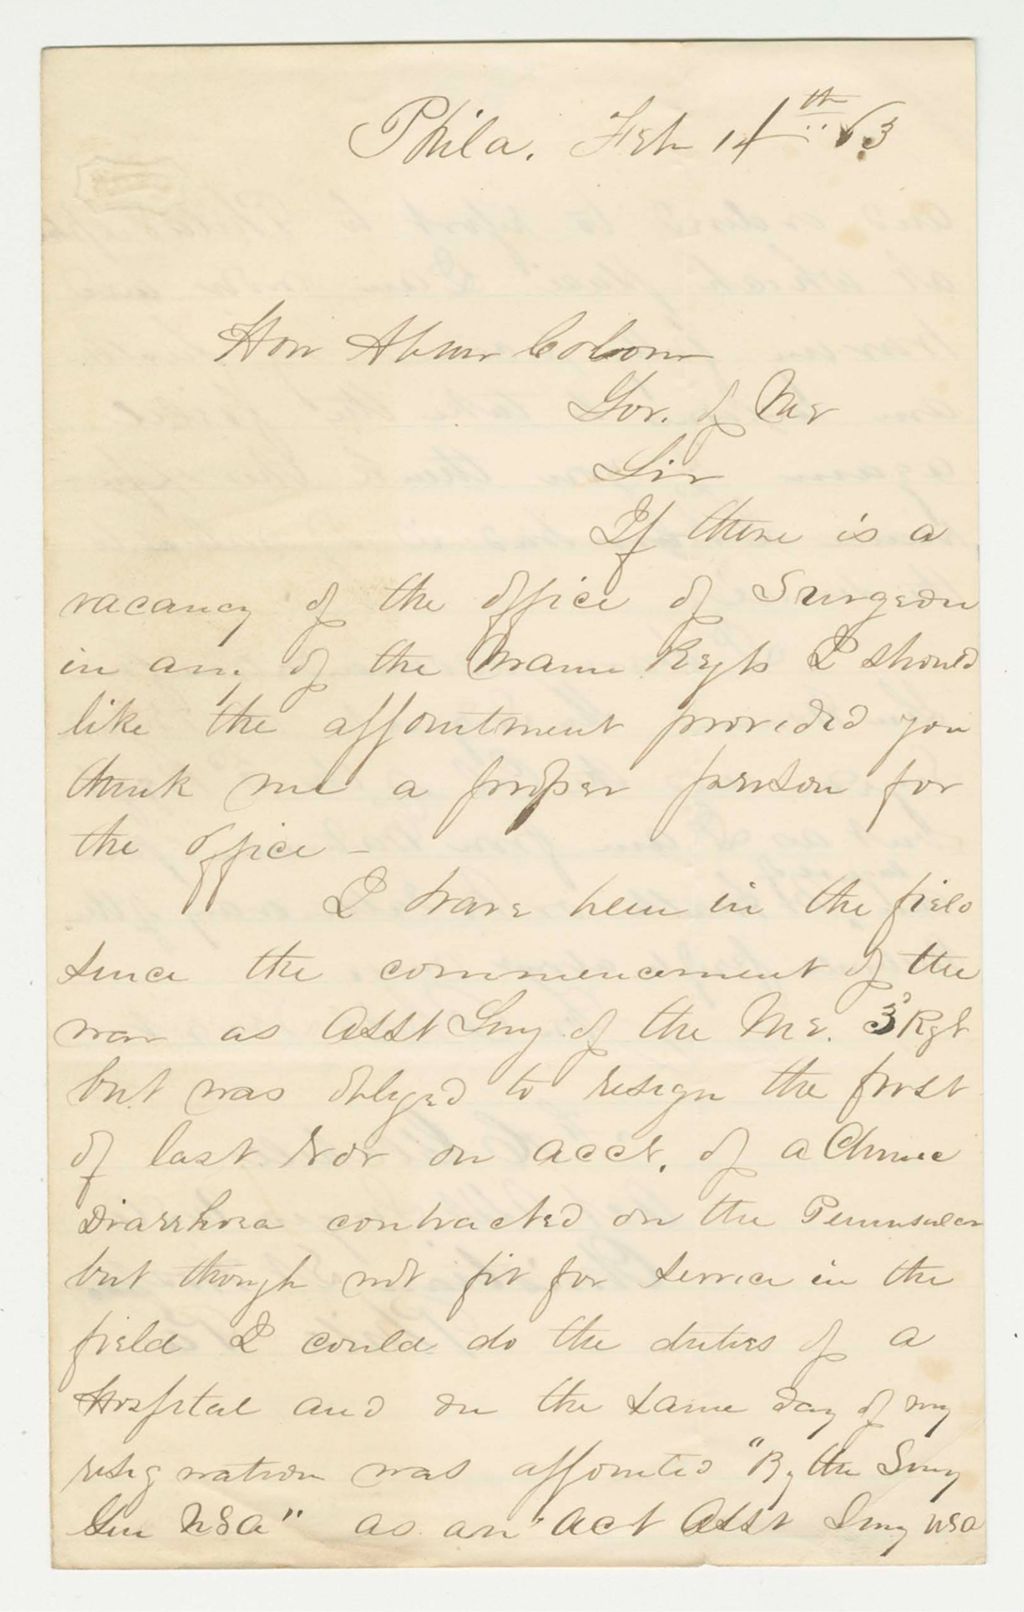 Phila. Feb 14th 63
Hon Abner Coburn
Gov. of Me
Sir
If there is a
vacancy of the office of Surgeon
in any of the Maine Regts I should
like the appointment provided you
think me a proper person for
the office –
I have been in the field
since the commencement of the
war as Asst Surg of the Me. 3d Rgt
but was obliged to resign the first
of last Nov on acct. of a Chronic
Diarrhoea contracted on the Peninsular
but though not fit for service in the
field I could do the duties of a
Hospital and on the same day of my
resignation was appointed "By the Surg
Gen USA" as an "Act Asst Surg USA